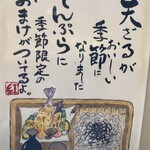 天ざるが
おいしい
季節に
なりました
てんぷらに
季節限定の
おまけがついてるよ。